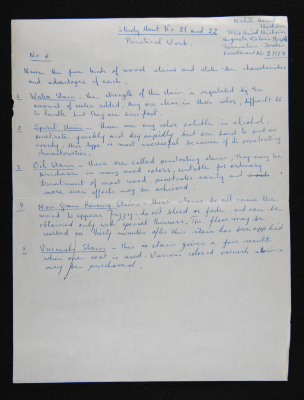 Study Unit No. 21 and 22
Practical Work.
No 6
Name the five kinds of wood stains and state the characteristics
and advantages of each.
1 Water Stain - the strength of this stain is regulated by the
amount of water added. they are clear in their color, difficult to
to handle but they are sun fast.
2 Spirit Stain - these are any color soluble in alcohol.
penetrate quickly and dry rapidly but are hard to put on
evenly. this type is most successful because of its penetrating
characteristics.
3 Oil Stain - these are called penetrating stains. They may be
purchase in many wood colors suitable for ordinary
treatment of most wood. penetrates easily and
more even effects may be achieved.
4 Non Grain Raising Stains - these stains do not cause the
wood to appear fuzzy. do not bleed or fade and can be
obtained only with special thinners. The floor may be
worked on thirty minutes after this stain has been applied
5 Varnish Stain - this is stain gives a fair result
when one coat is used. Various colored varnish stains
may be purchased.